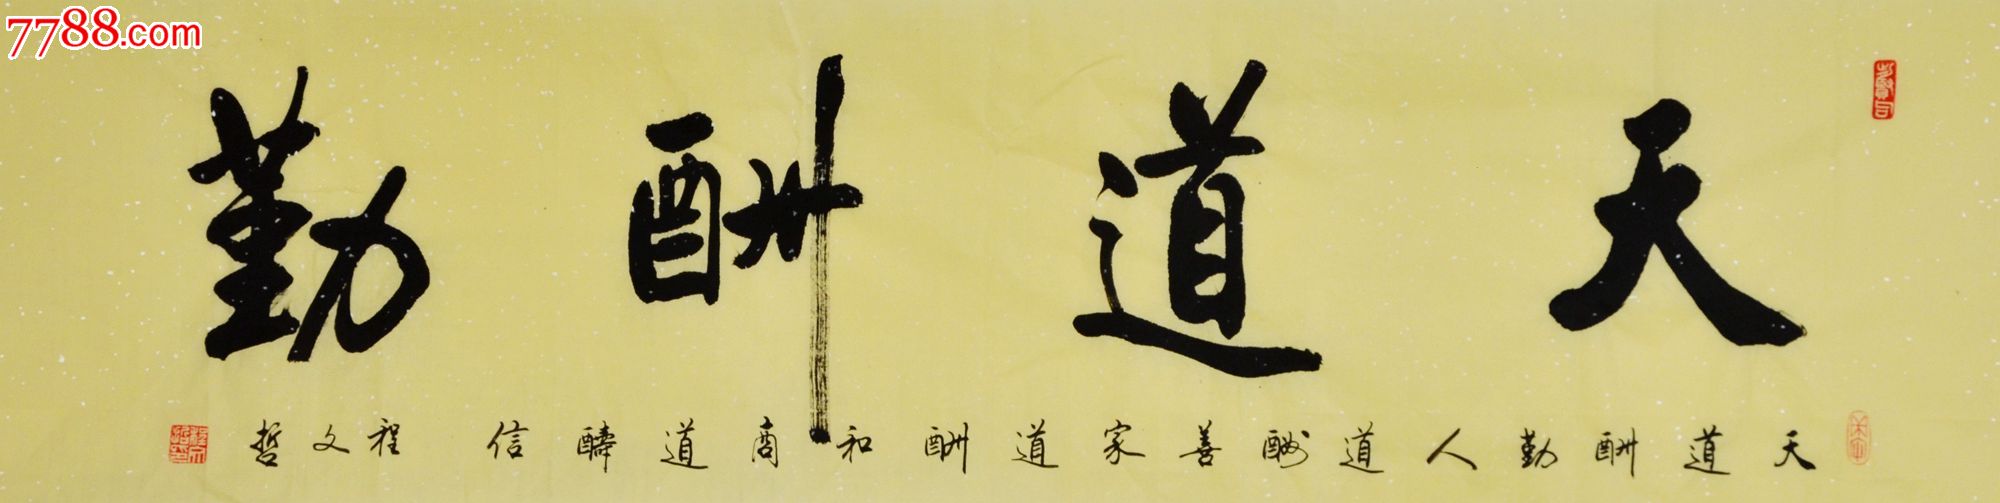 7788.com
天道酬勤
天道酬勤人道酬善家道酬和商道醻信 程文哲